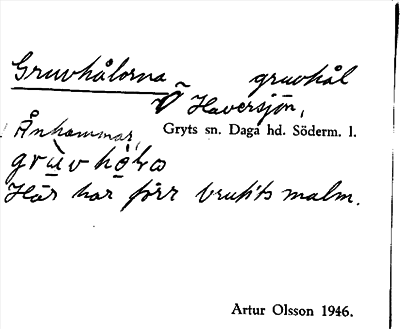 Gruvhålorna gruvhål
V Haversjön,
Ånhammar, Gryts sn. Daga hd. Söderm. l.
Här har förr brutits malm.
Artur Olsson 1946.